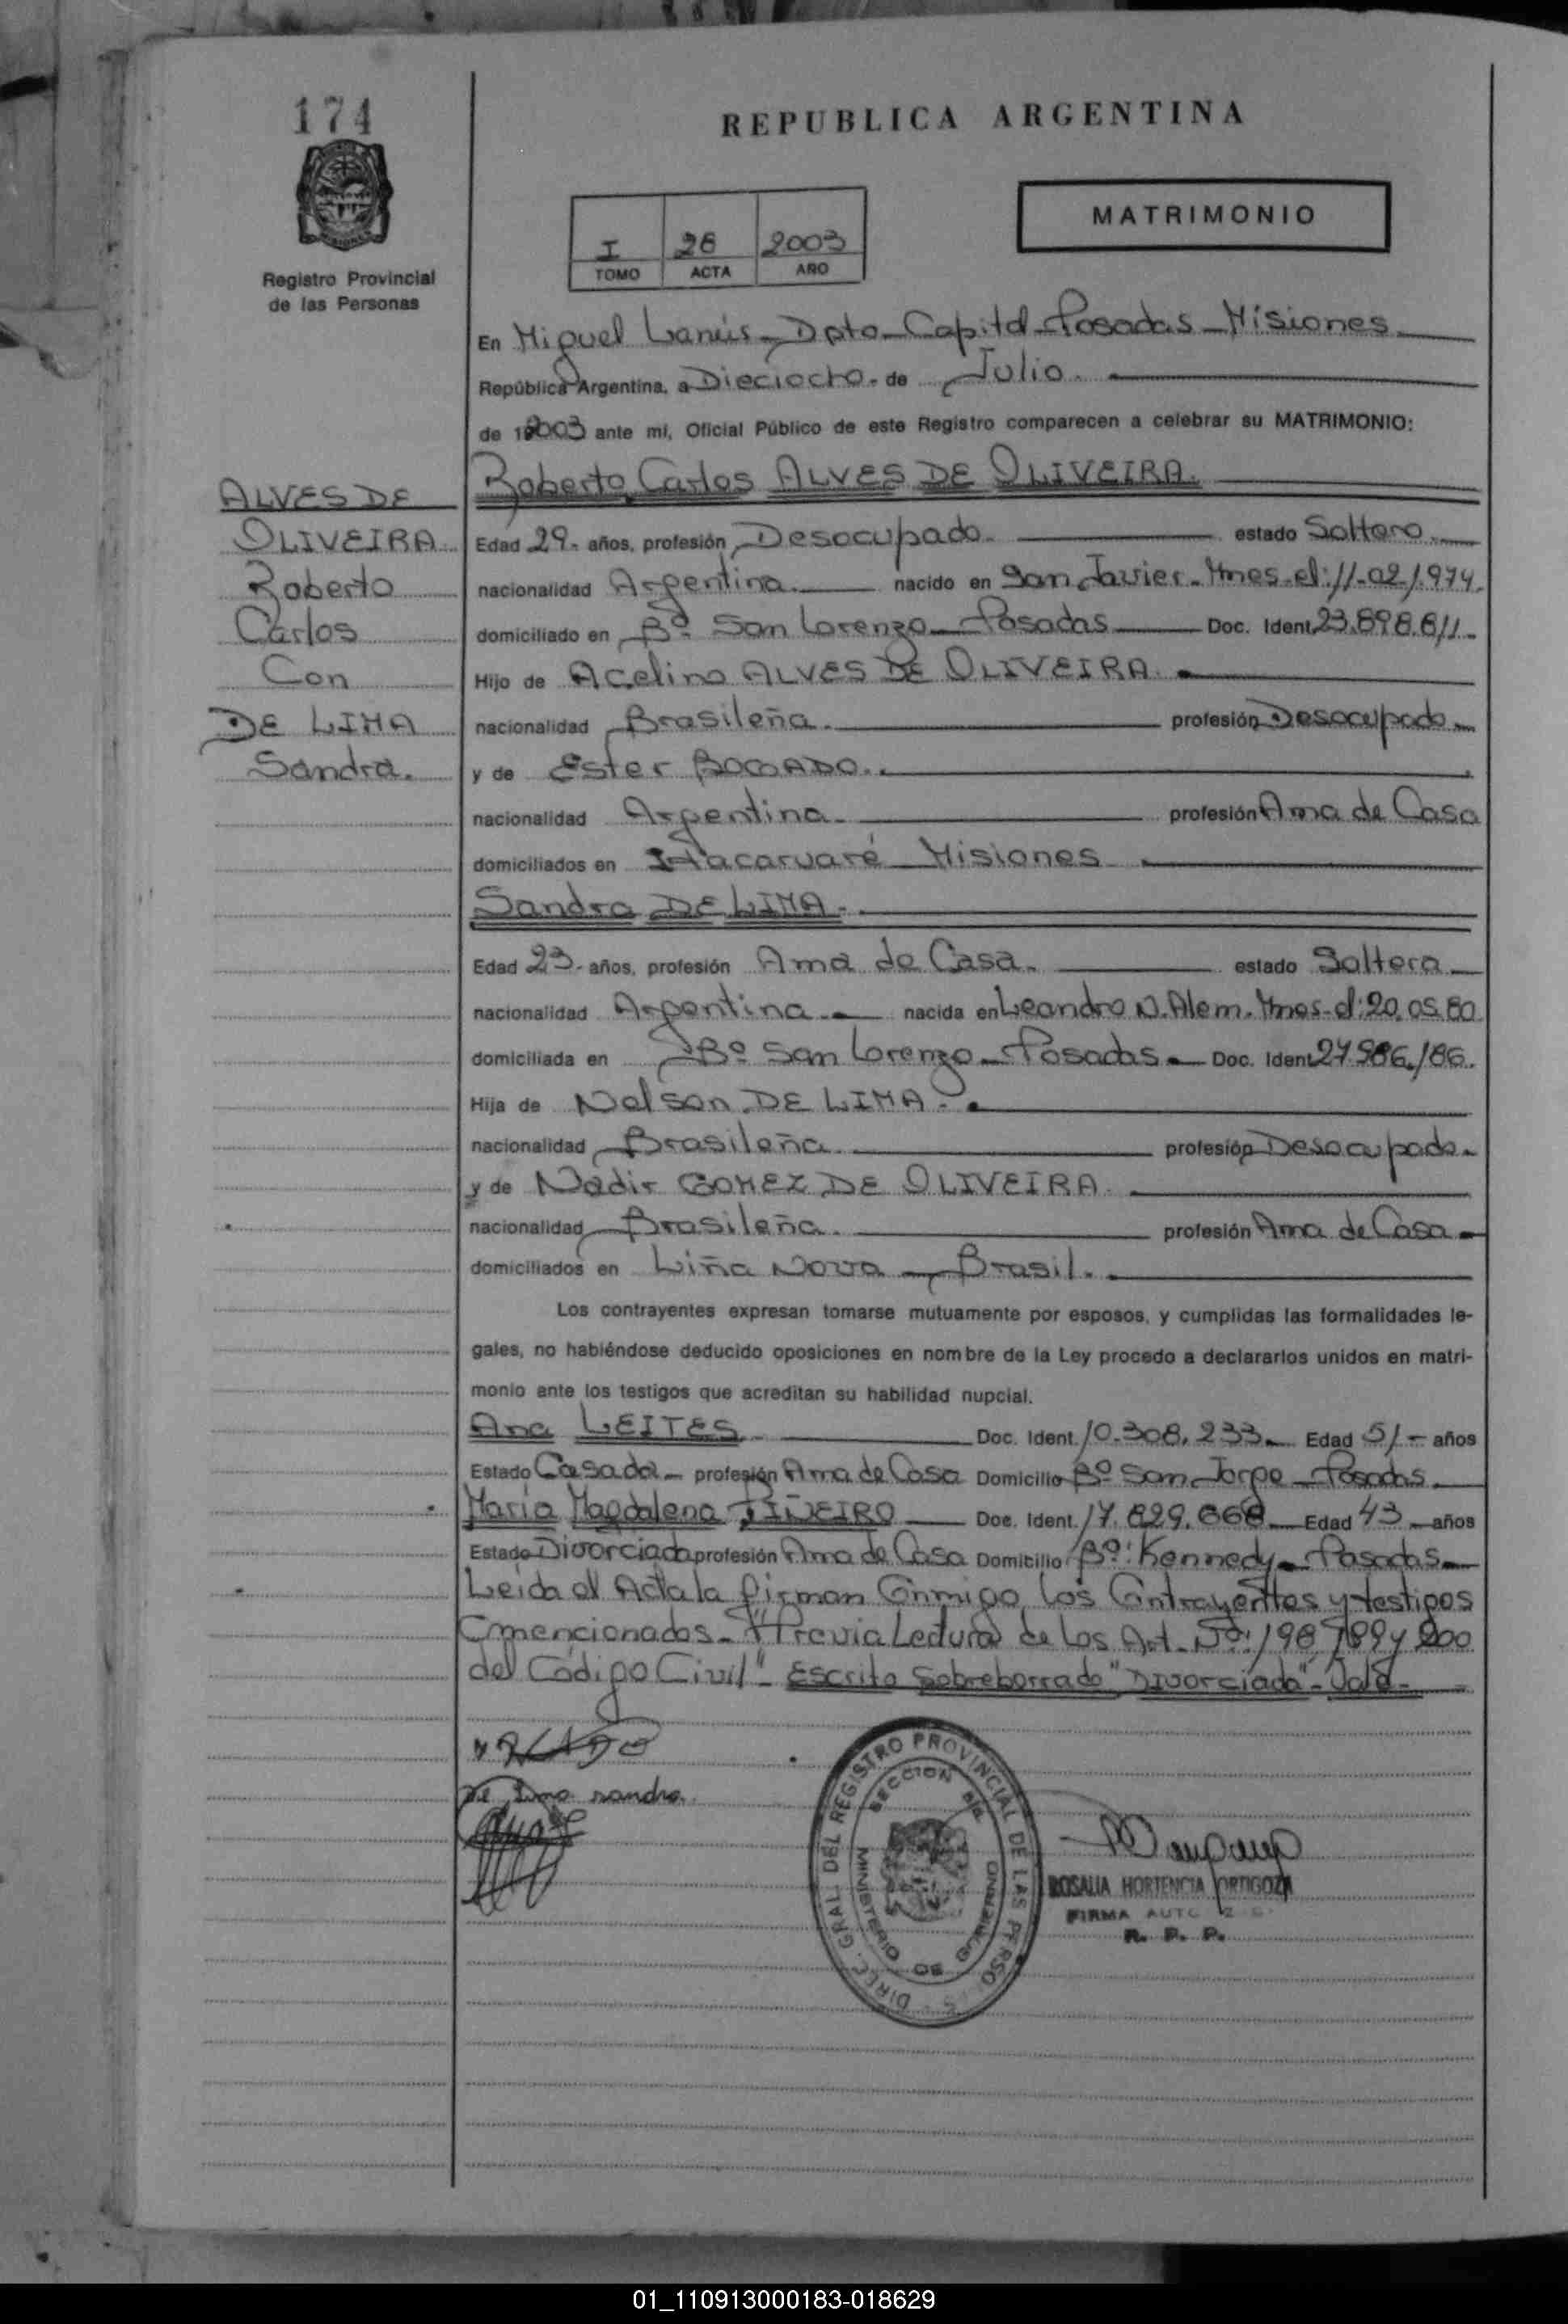 174
REPUBLICA ARGENTINA
MATRIMONIO
I 26 2003
TOMO ACTA AÑO
Registro Provincial
de las Personas
En Miguel Lanús - Dpto - Capital - Posadas - Misiones
República Argentina, a Dieciocho - de Julio.
de 2003 ante mí, Oficial Público de este Registro comparecen a celebrar su MATRIMONIO:
Roberto Carlos ALVES DE OLIVEIRA.
ALVES DE
OLIVEIRA
Roberto
Carlos
Con
DE LIMA
Sandra.
Edad 29 - años, profesión Desocupado. estado Soltero
nacionalidad Argentina. nacido en San Javier - Mnes - el: 11-02-1.974.
domiciliado en Bº San Lorenzo - Posadas Doc. Ident. 23.898.611.
Hijo de Acelino ALVES DE OLIVEIRA.
nacionalidad Brasileña. profesión Desocupado
y de Ester
nacionalidad Argentina. profesión Ama de Casa
domiciliados en Itacaruaré Misiones
Sandra DE LIMA.
Edad 23 - años, profesión Ama de Casa. estado Soltera
nacionalidad Argentina. nacida en Leandro N. Alem. Mnes - el: 20.05.80
domiciliada en Bº San Lorenzo - Posadas. Doc. Ident. 27.986.186.
Hija de Nelson DE LIMA.
nacionalidad Brasileña. profesión Desocupado.
y de Nadir GOMEZ DE OLIVEIRA.
nacionalidad Brasileña. profesión Ama de Casa
domiciliados en Liña Nova - Brasil.
Los contrayentes expresan tomarse mutuamente por esposos, y cumplidas las formalidades le-
gales, no habiéndose deducido oposiciones en nombre de la Ley procedo a declararlos unidos en matri-
monio ante los testigos que acreditan su habilidad nupcial.
Ana LEITES Doc. Ident. 10.308.233 Edad 51 - años
Estado Casada - profesión Ama de Casa Domicilio Bº San Jorge - Posadas
María Magdalena PIÑEIRO Doc. Ident. 17.829.668 Edad 43 - años
Estado Divorciada profesión Ama de Casa Domicilio Bº: Kennedy - Posadas
Leída el Acta la firman Conmigo los Contrayentes y testigos
mencionados - "Previa Lectura de los Art. Nº: 198, 199 y 200
del Código Civil" - Escrito Sobreborrado "Divorciada" - Vale -
De Lima sandra
DIREC. GRAL. DEL REGISTRO PROVINCIAL DE LAS PERSO
SECCION
MINISTERIO DE GOBIERNO
ROSALIA HORTENCIA ORTIGOZA
FIRMA
R. P. P.
01_110913000183-018629